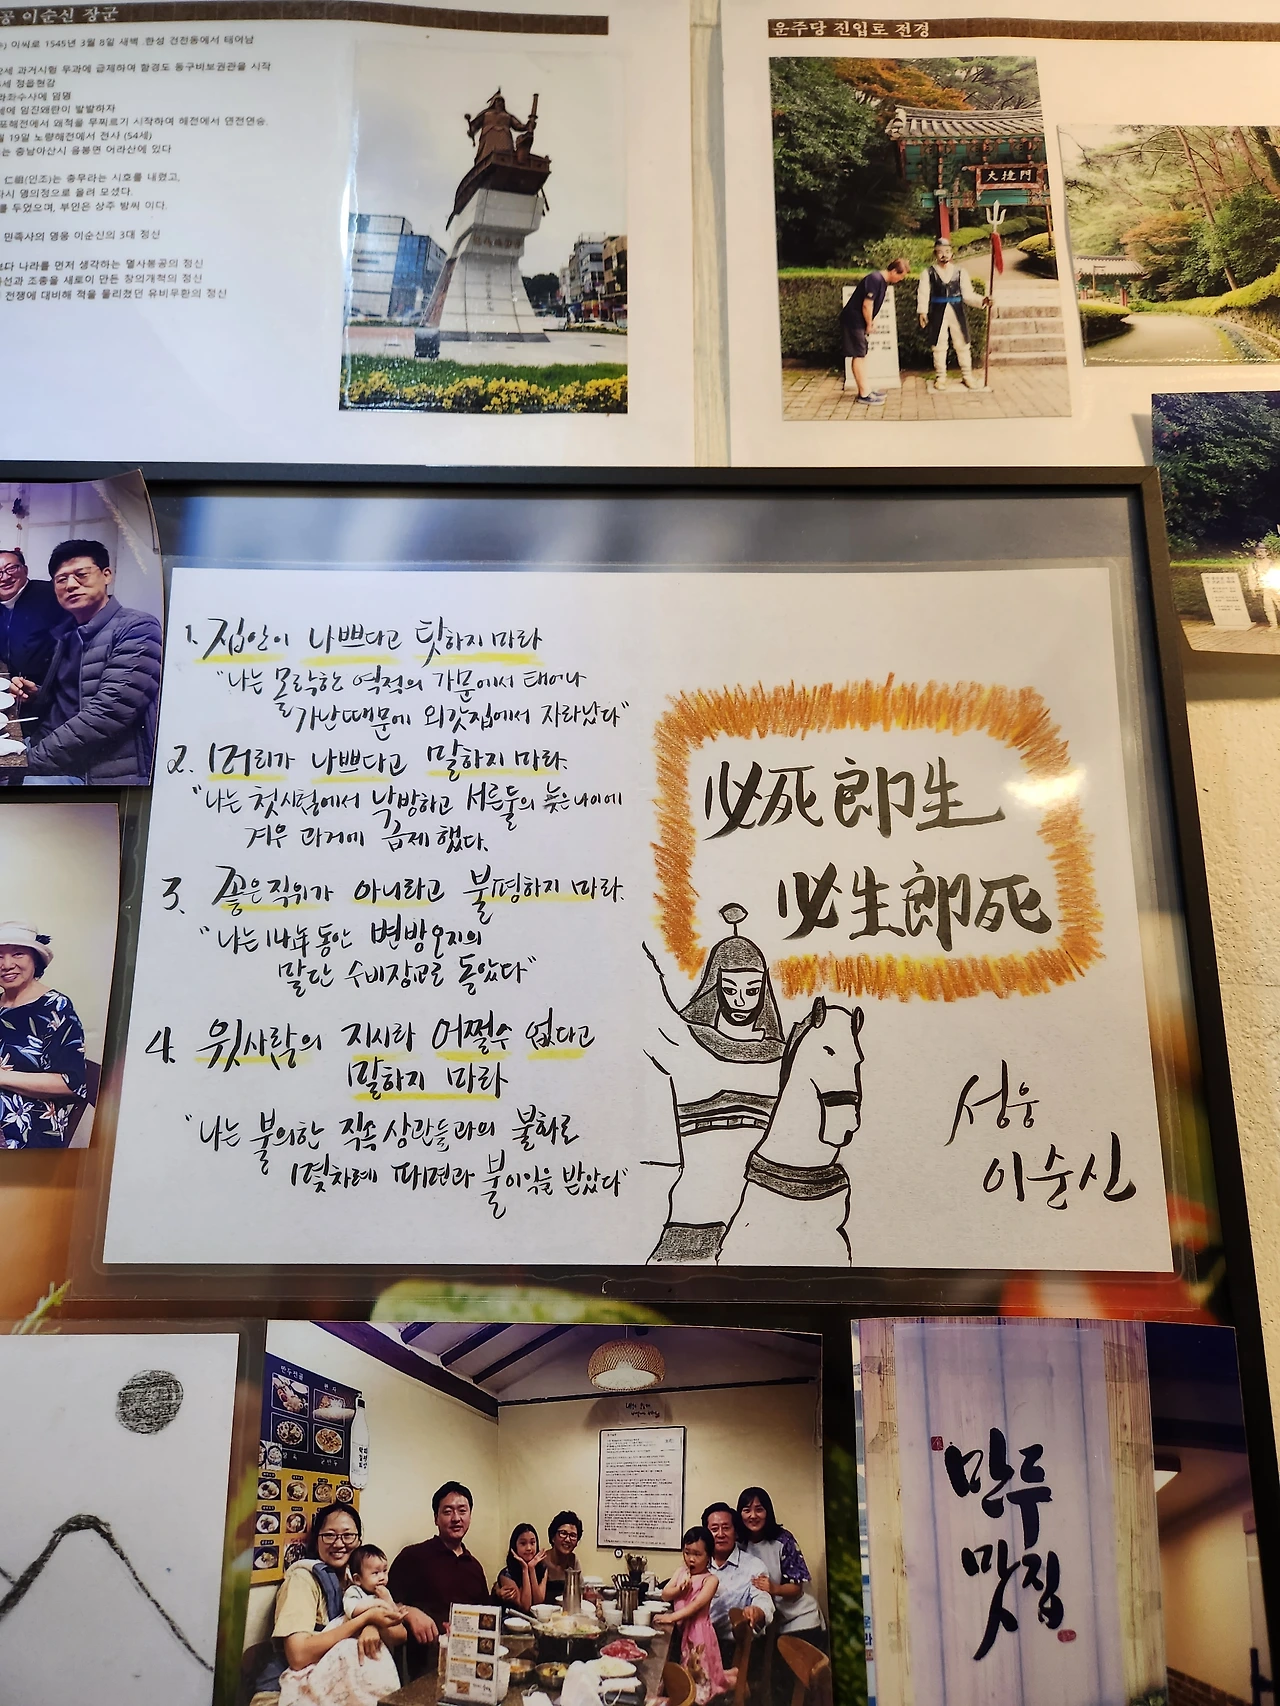 공 이순신 장군
이씨로 1545년 3월 8일 새벽 한성 건천동에서 태어남
세 과거시험 무과에 급제하여 함경도 동구비보권관을 시작
세 정읍현감
좌수사에 임명
세에 임진왜란이 발발하자
포해전에서 왜적을 무찌르기 시작하여 해전에서 연전연승.
19일 노량해전에서 전사 (54세)
는 충남아산시 음봉면 어라산에 있다
仁祖(인조)는 충무라는 시호를 내렸고,
다시 영의정으로 올려 모셨다.
를 두었으며, 부인은 상주 방씨 이다.
민족사의 영웅 이순신의 3대 정신
보다 나라를 먼저 생각하는 멸사봉공의 정신
선과 조총을 새로이 만든 창의개척의 정신
전쟁에 대비해 적을 물리쳤던 유비무환의 정신
운주당 진입로 전경
大捷門
1. 집안이 나쁘다고 탓하지 마라
"나는 몰락한 역적의 가문에서 태어나
가난때문에 외갓집에서 자라났다"
2. 머리가 나쁘다고 말하지 마라.
"나는 첫시험에서 낙방하고 서른둘의 늦은 나이에
겨우 과거에 급제 했다.
3. 좋은 직위가 아니라고 불평하지 마라.
"나는 14年동안 변방오지의
말단 수비장교로 돌았다"
4. 윗사람의 지시라 어쩔수 없다고
말하지 마라
"나는 불의한 직속 상관들과의 불화로
몇차례 파면과 불이익을 받았다"
必死郎生
必生郎死
성웅
이순신
만두
맛집